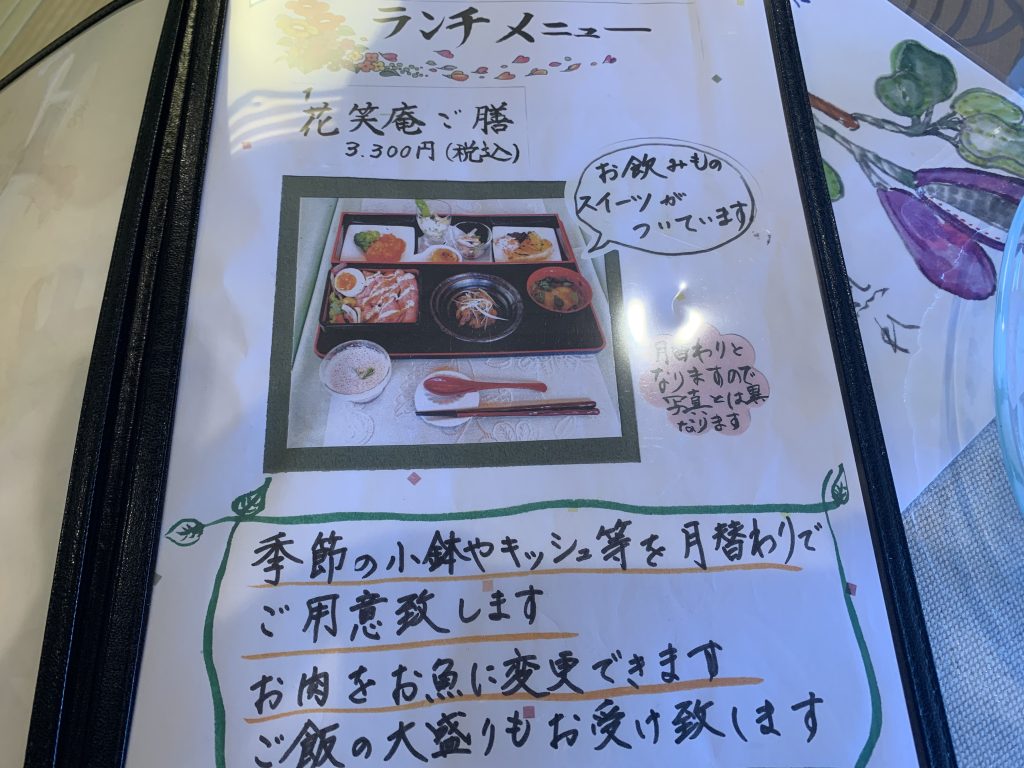 ランチメニュー
花笑庵ご膳
3.300円(税込)
お飲みもの
スイーツが
ついています
月替わりと
なりますので
写真とは異
なります
季節の小鉢やキッシュ等を月替わりで
ご用意致します
お肉をお魚に変更できます
ご飯の大盛りもお受け致します